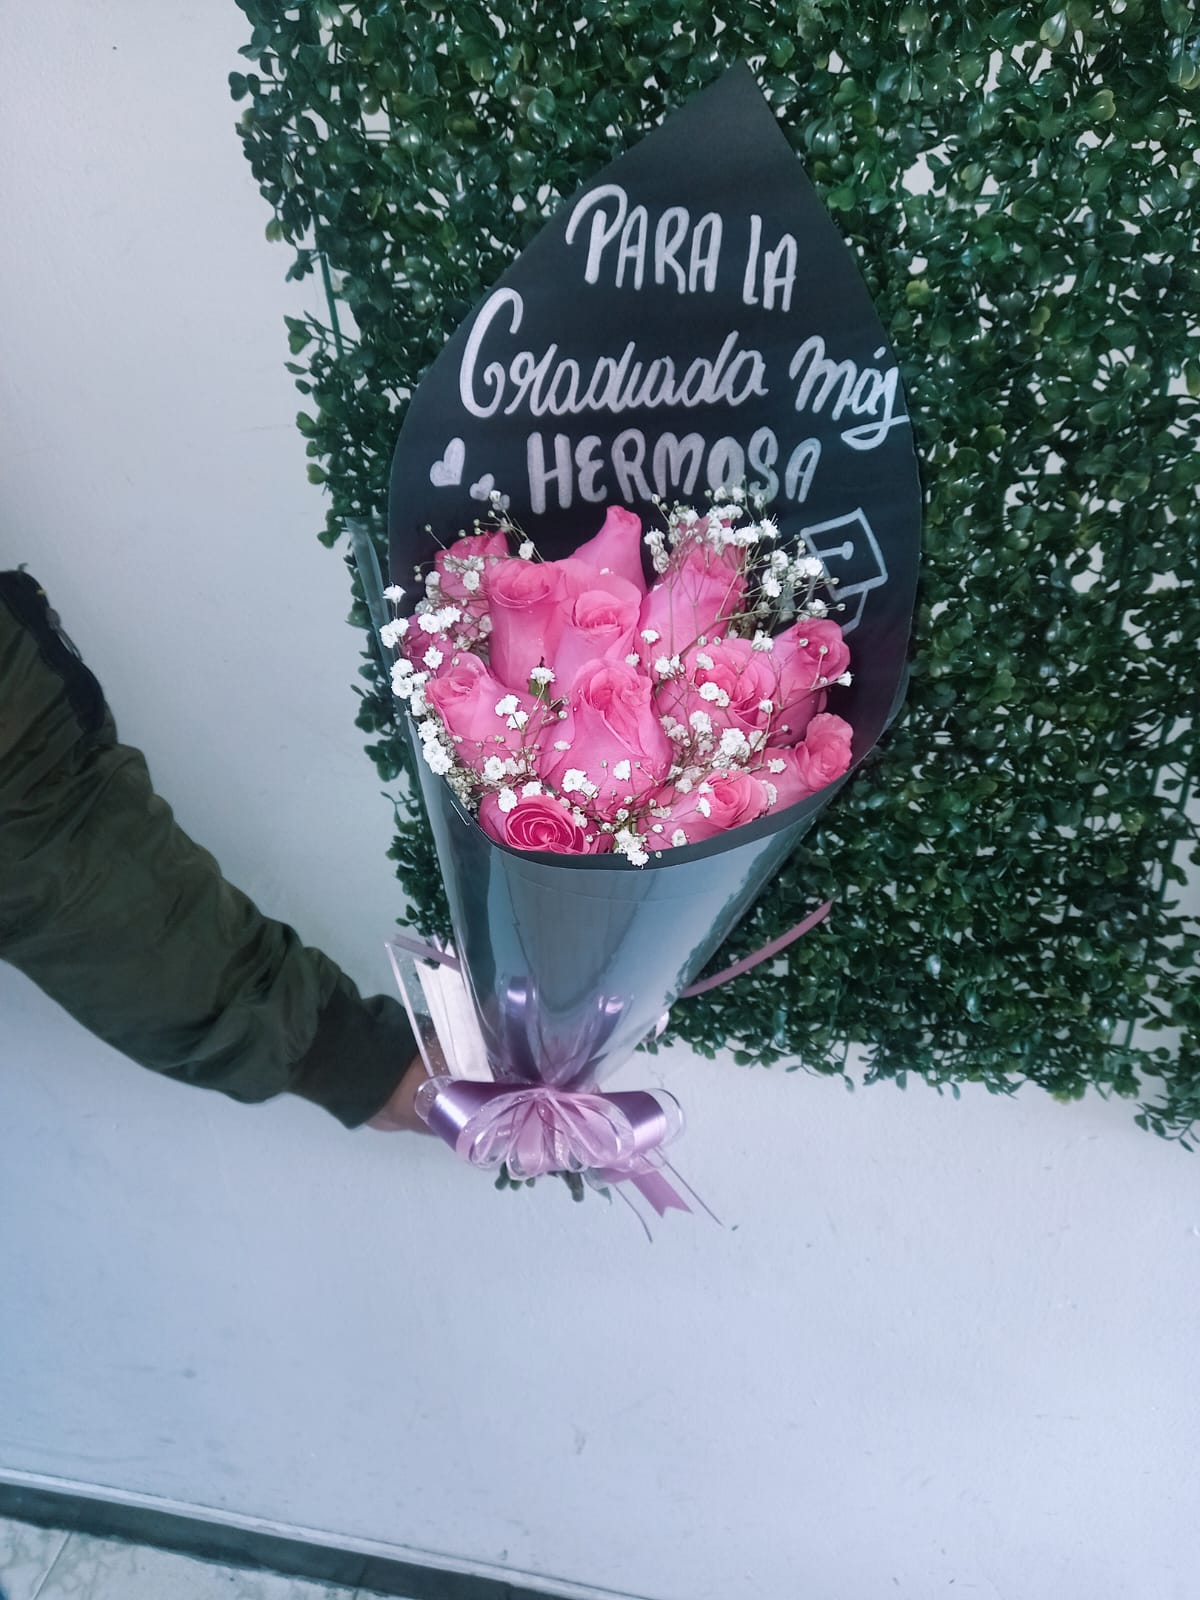 PARA LA
Graduada más
HERMOSA